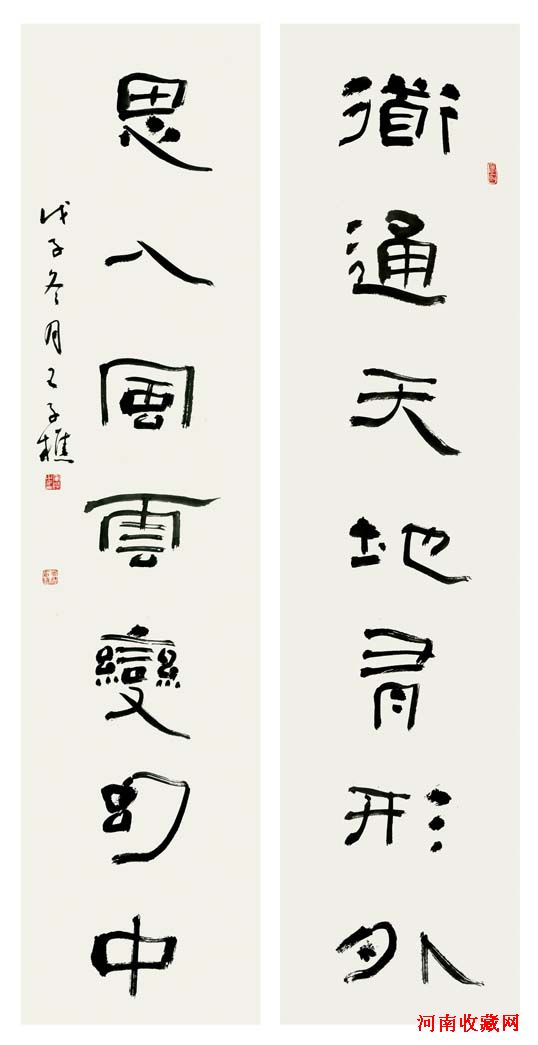 衟通天地有形外
思入風雲變幻中
戊子冬月子樵
河南收藏网